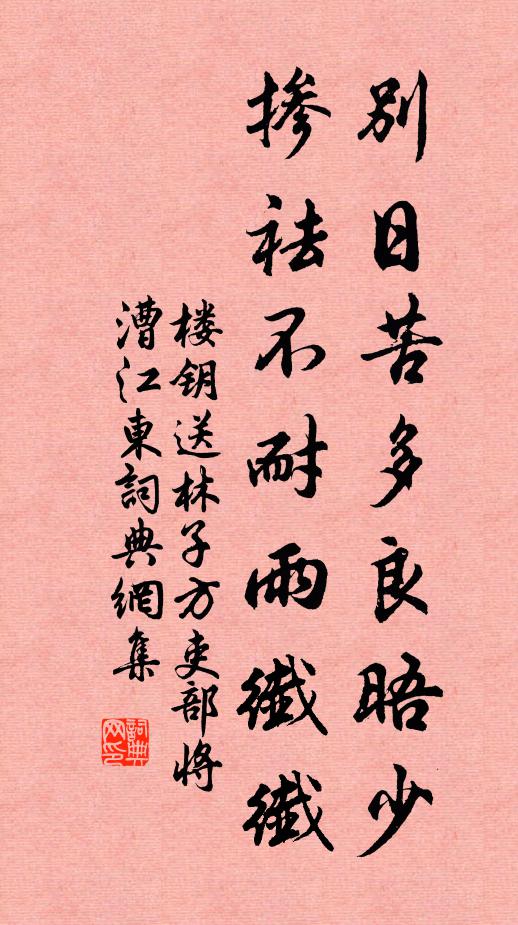 別日苦多良晤少
掺祛不耐雨纖纖
楼钥送林子方吏部将
漕江東詞典網集
詞典網印